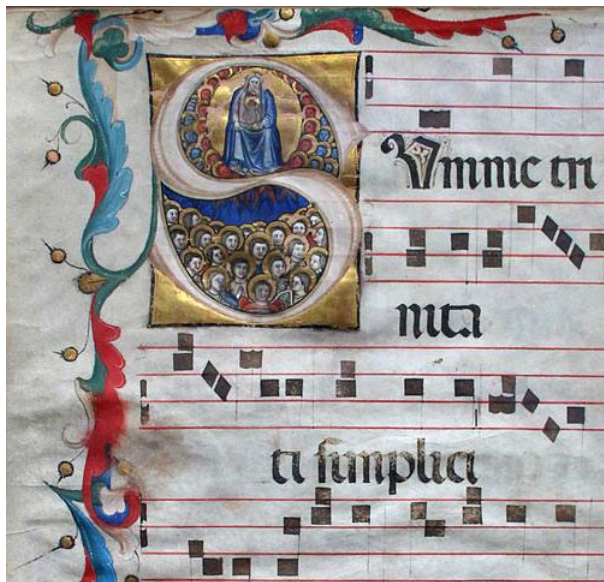 Summe tri
nita
ti simplici